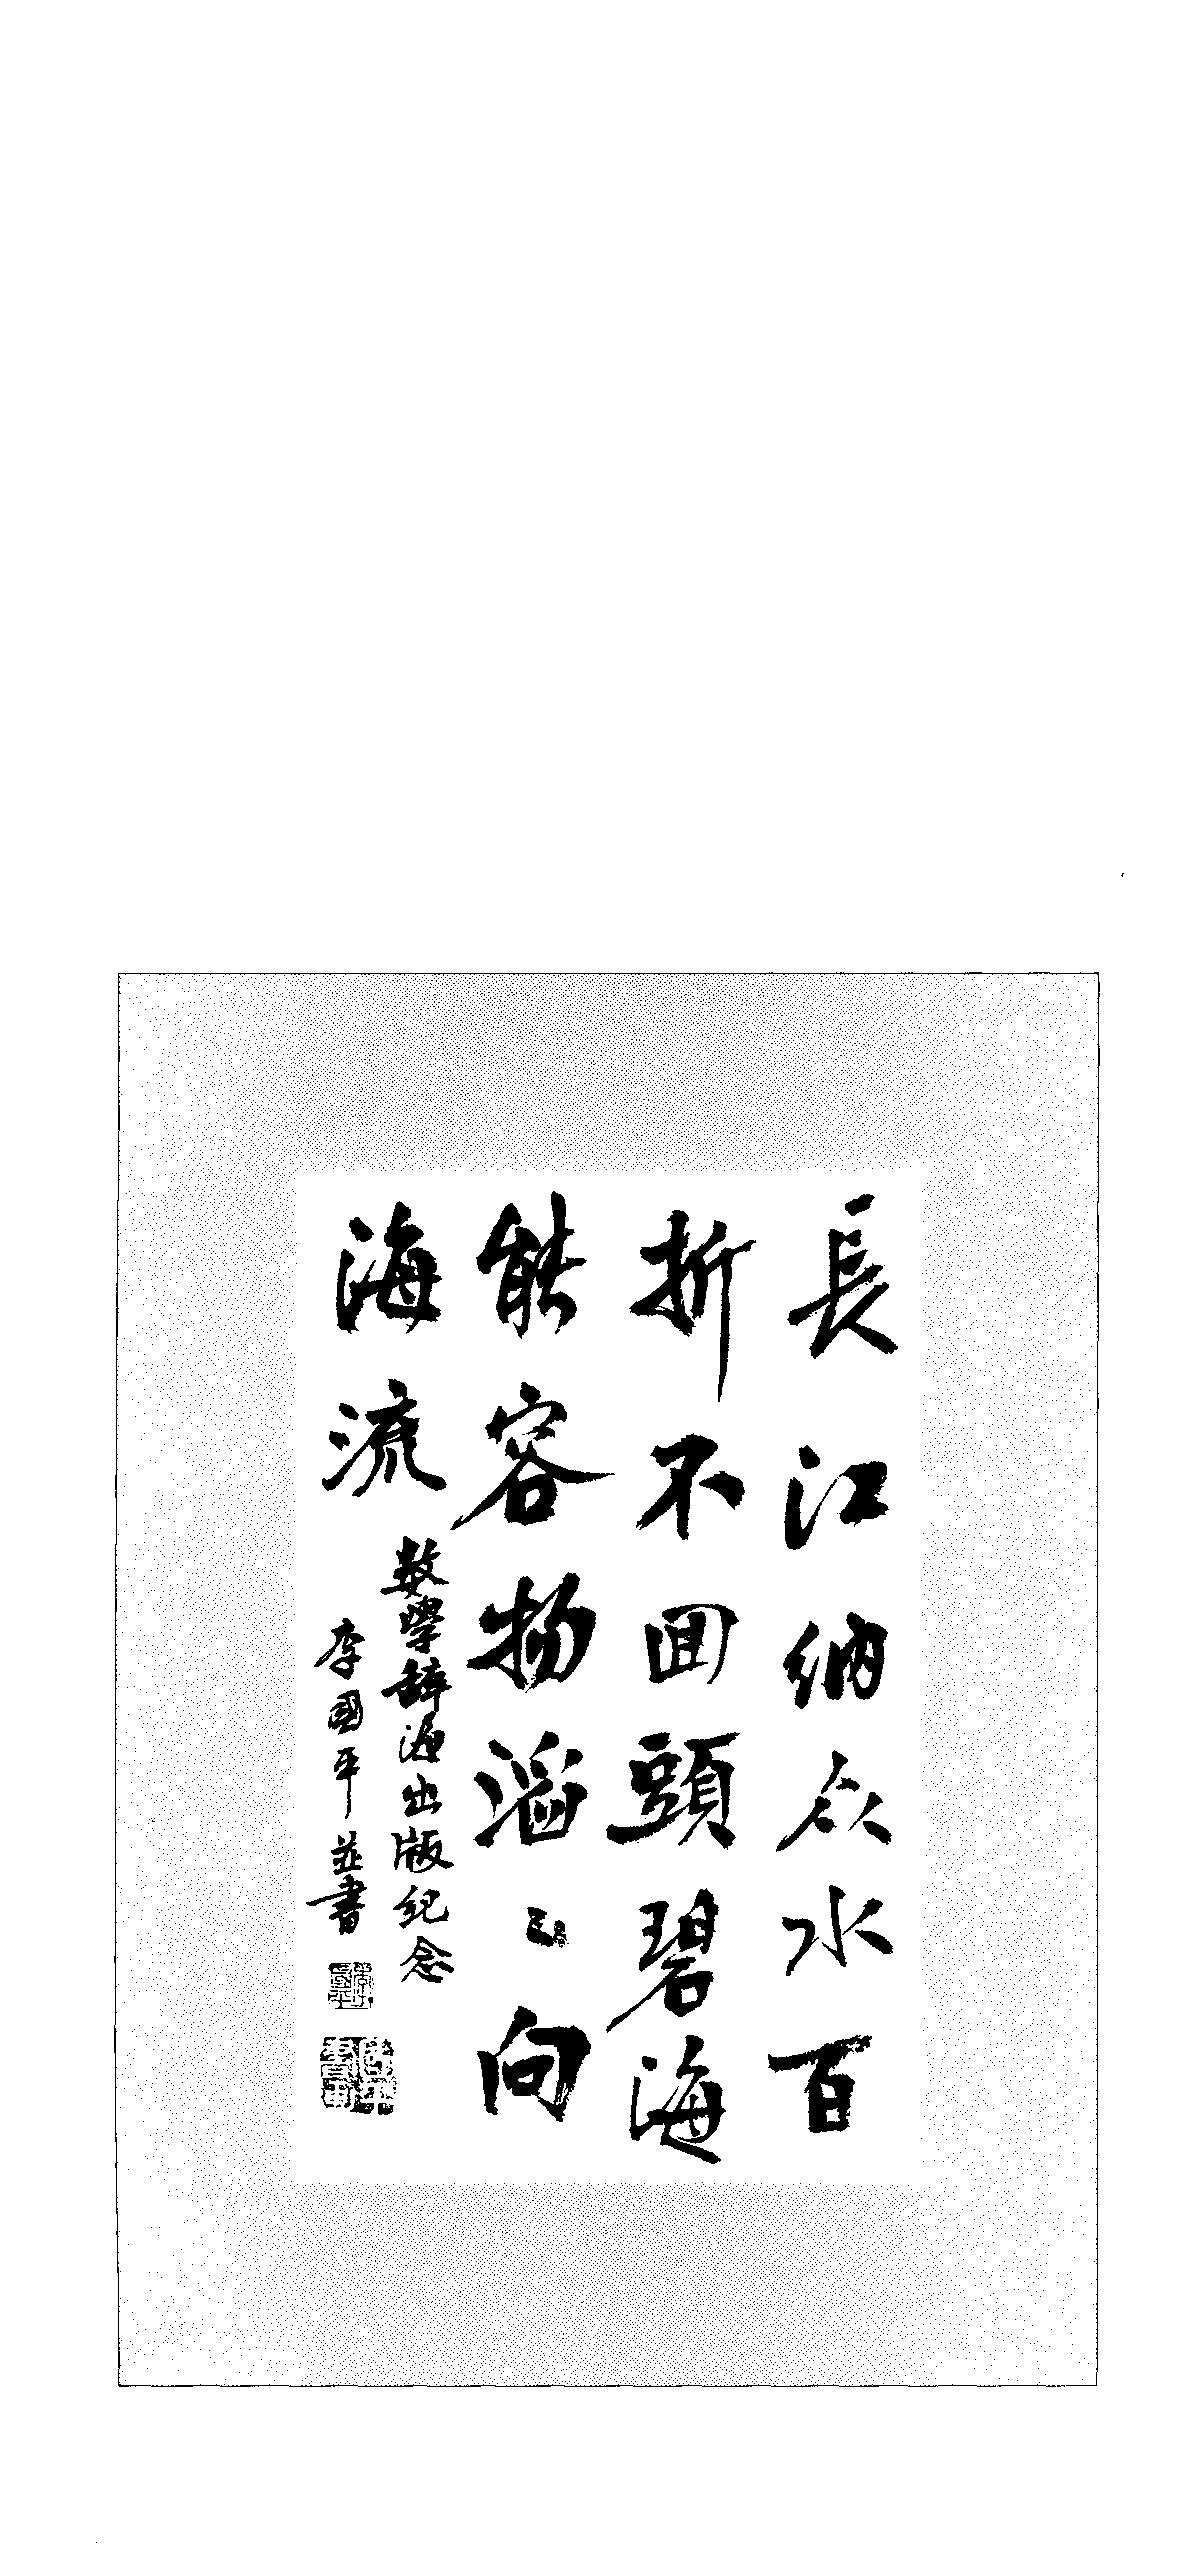 長江纳众水百
折不回頭碧海
能容物滔〻向
海流
数學辞海出版纪念
李國平並書